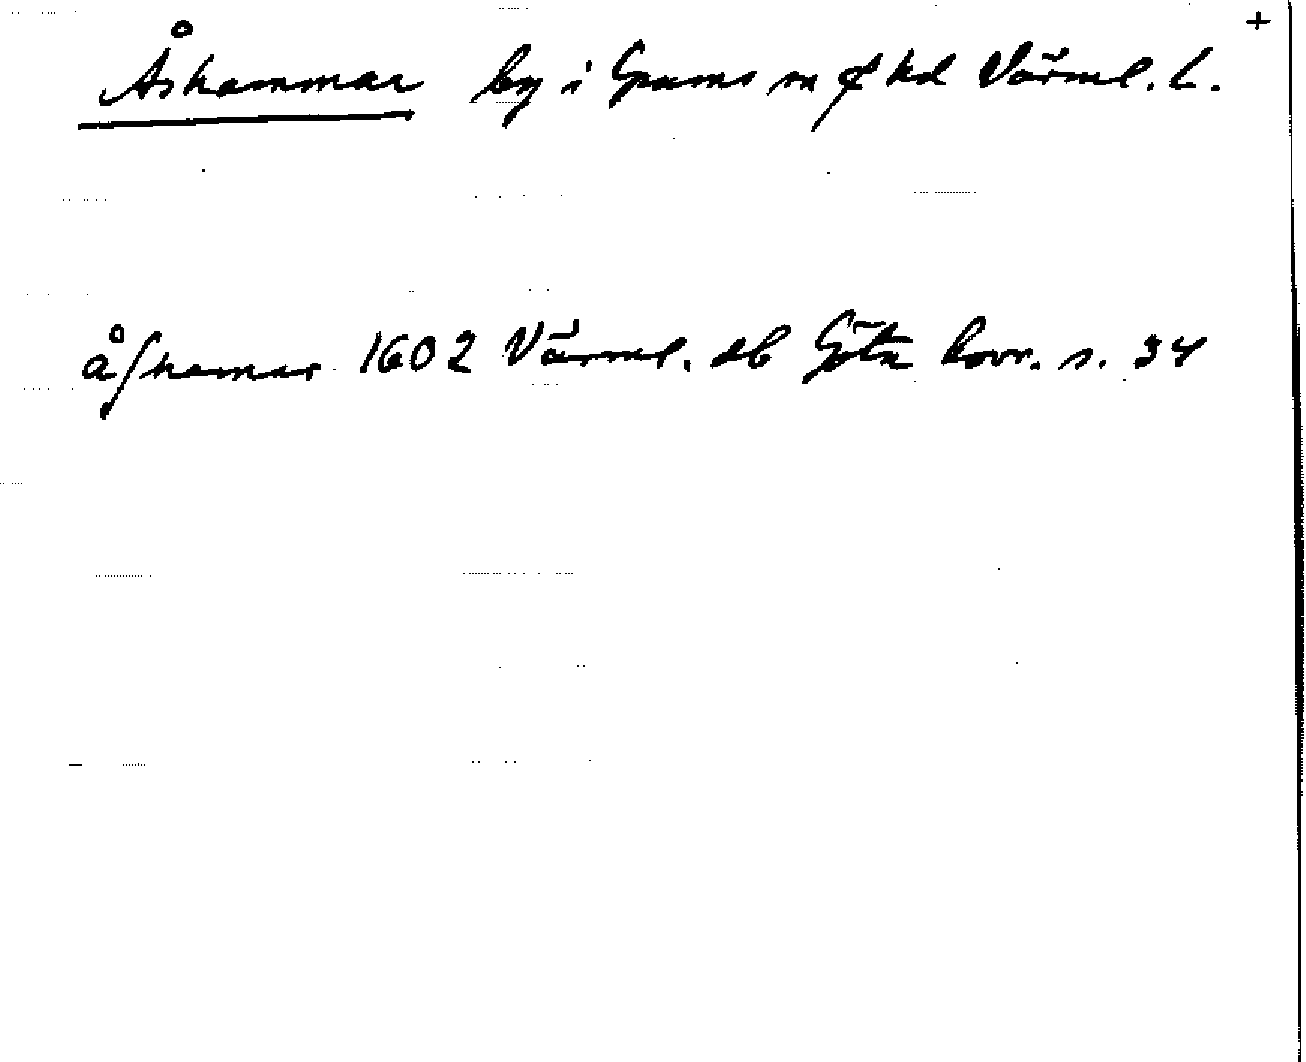 +
Åshammar by i Grums sn ₵ hd Värml. L.
åſhamar 1602 Värml. db Göta hovr. s. 34